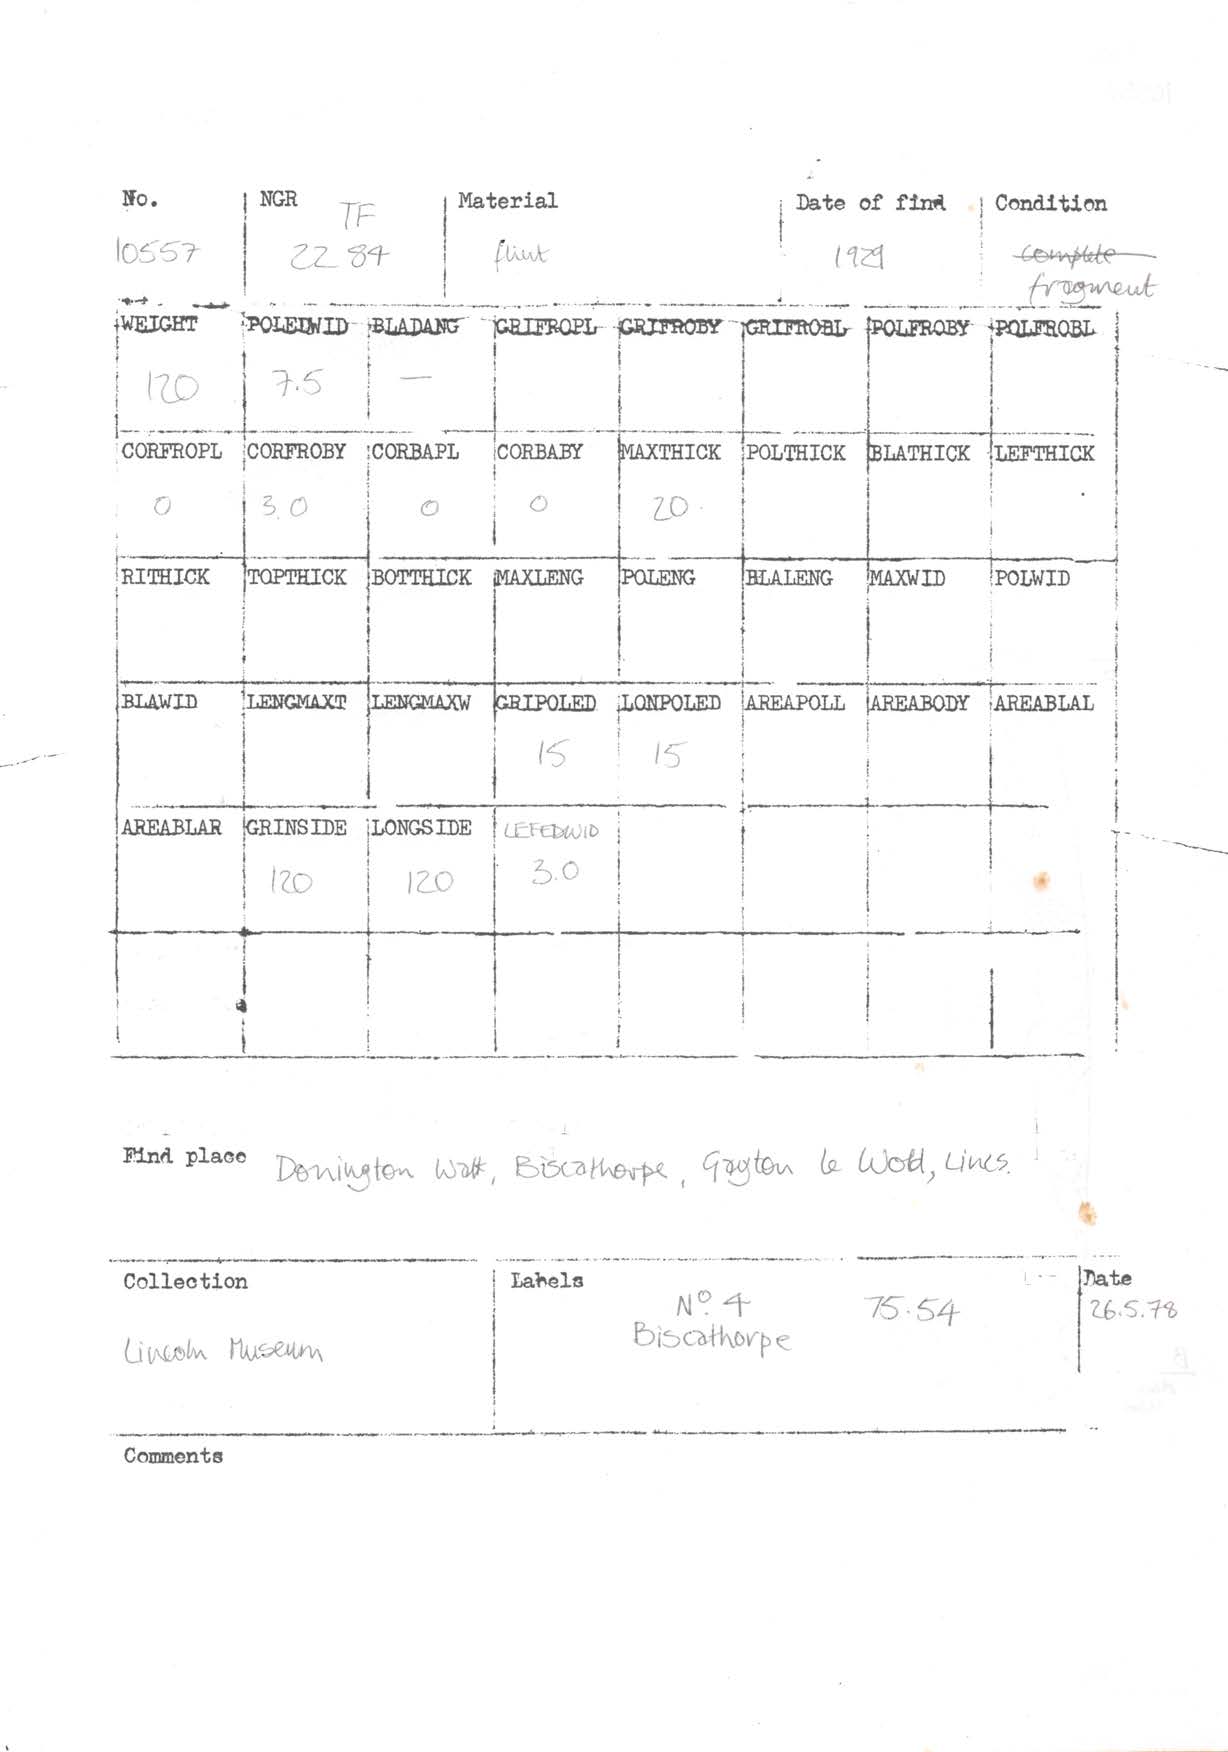 No. NGR Material Date of find Condition
TF
10557 22 84 flint 1929 complete
fragment
WEIGHT POLEDWID BLADANG GRIFROPL GRIFROBY GRIFROBL POLFROBY POLFROBL
120 7.5 —
CORFROPL CORFROBY CORBAPL CORBABY MAXTHICK POLTHICK BLATHICK LEFTHICK
0 3.0 0 0 20
RITHICK TOPTHICK BOTTHICK MAXLENG POLENG BLALENG MAXWID POLWID
BLAWID LENGMAXT LENGMAXW GRIPOLED LONPOLED AREAPOLL AREABODY AREABLAL
15 15
AREABLAR GRINSIDE LONGSIDE LEFEDWID
120 120 3.0
Find place Donington Biscathorpe, Gayton le Wold, Lincs.
Collection Labels Date
No. 4 75.54 26.5.78
Biscathorpe
Lincoln Museum
Comments